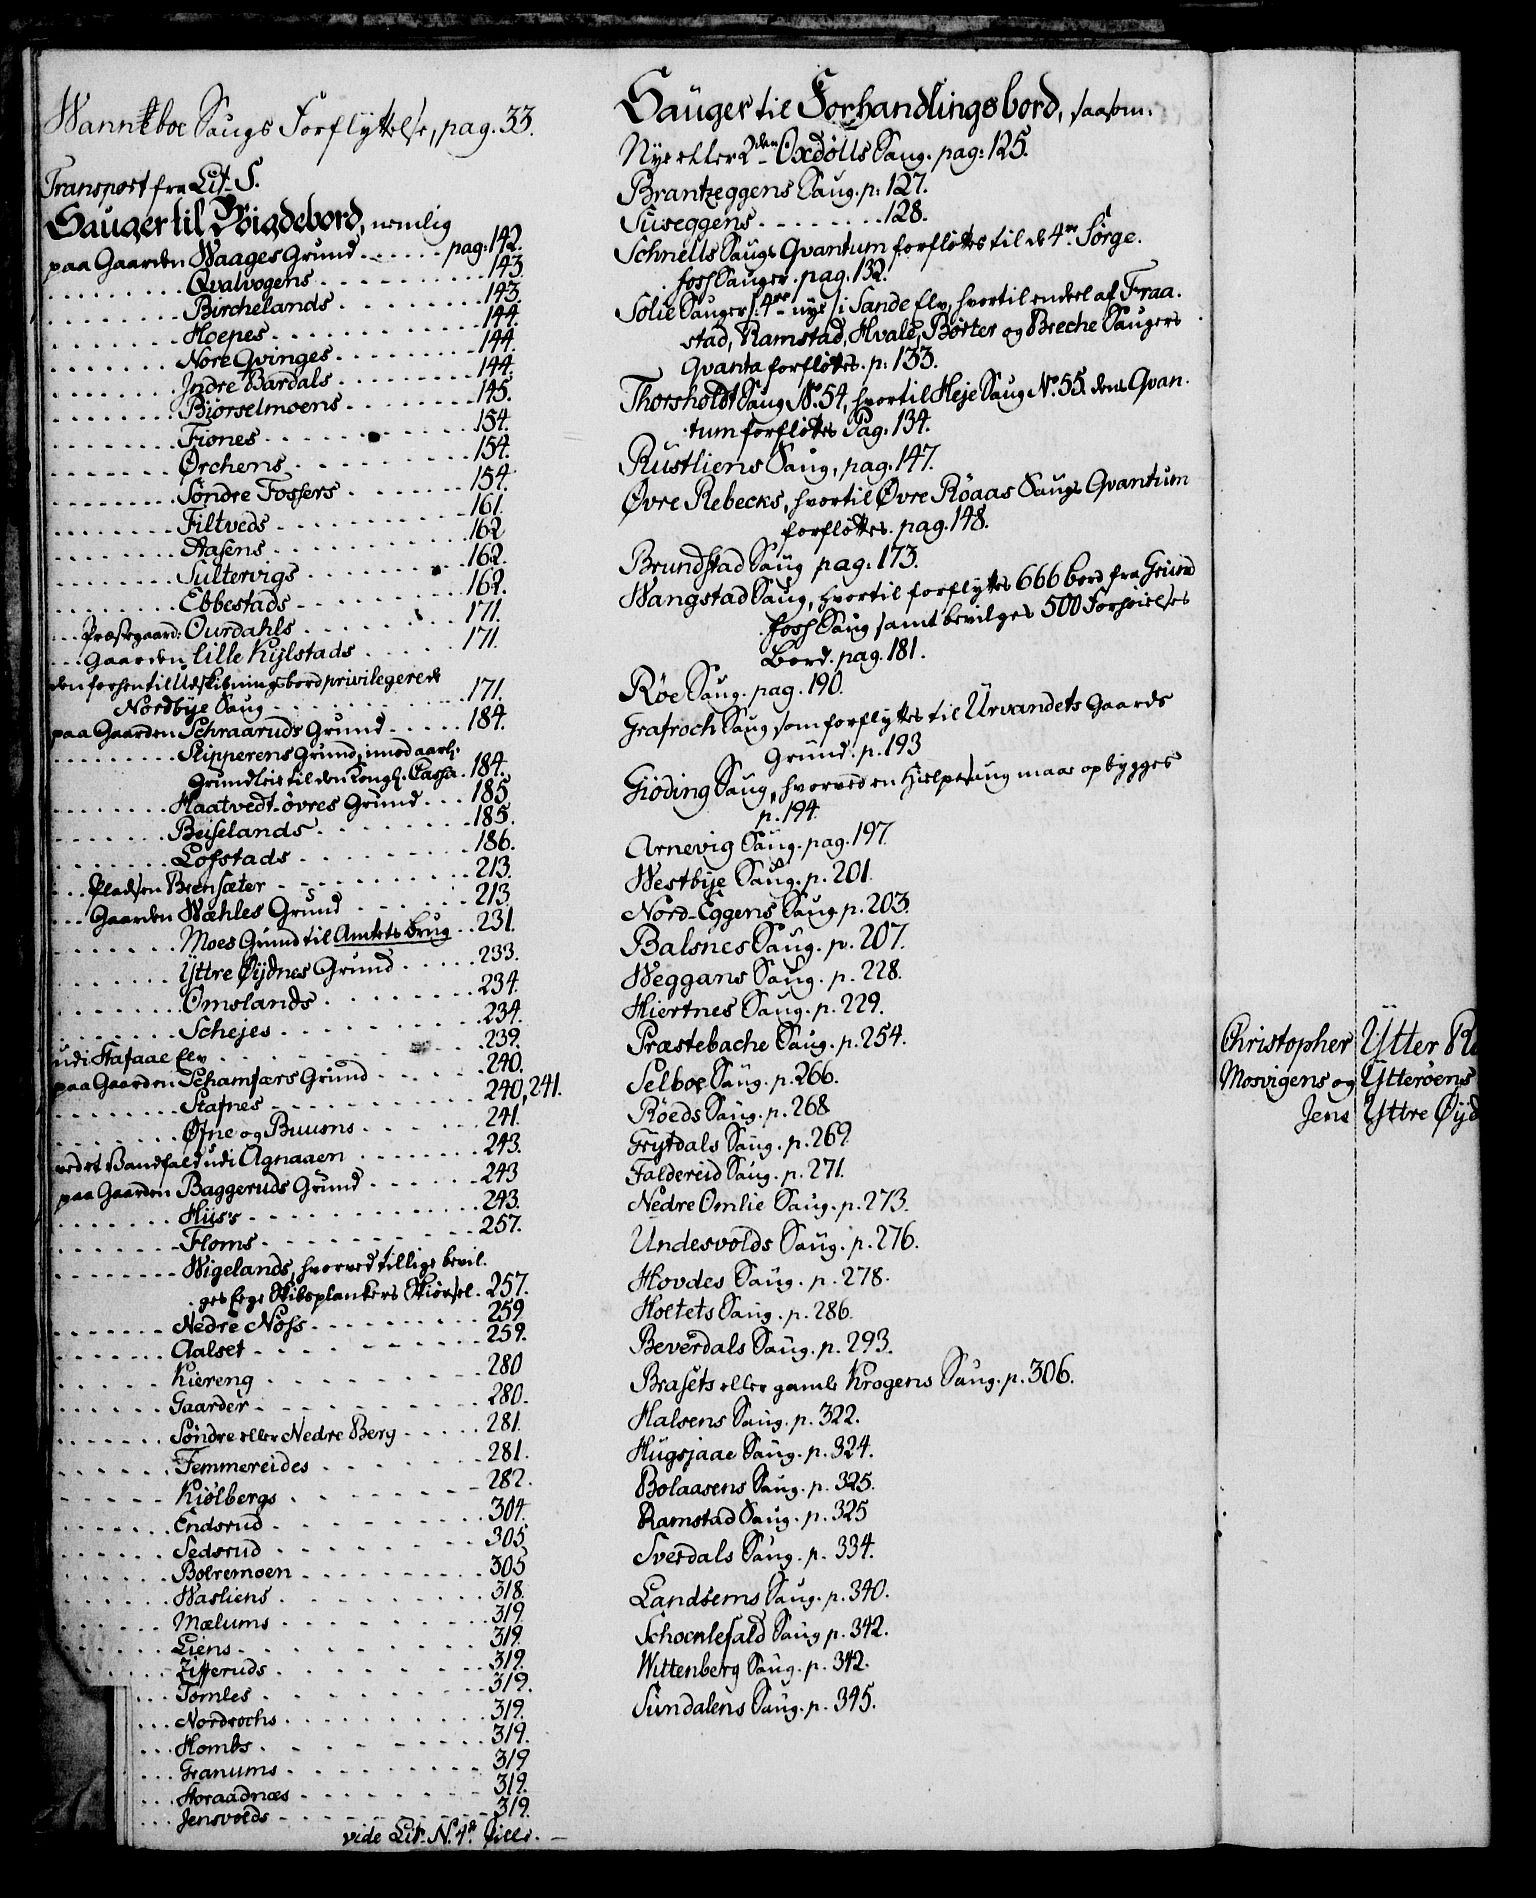 Wanneboe Saugs Forflyttelse, pag. 33.
Transport fra Lit. S.
Sauger til Böigdebord, nemlig
paa Gaarden Waages Grund . . . . . . pag: 142.
Qvalvogens . . . . . . . . 143.
Birchelands . . . . . . . . 143.
Hoepes . . . . . . . . 144.
Nore Qvinges . . . . . . . . 144.
Jndre Bardals . . . . . . . . 144.
Biørselmoens . . . . . . . . 145.
Fiønes . . . . . . . . 154.
Ørchens . . . . . . . . 154.
Søndre Fossers . . . . . . . . 154.
Filtveds . . . . . . . . 161.
Aasens . . . . . . . . 162
Sultervigs . . . . . . . . 162.
Ebbestads . . . . . . . . 162.
. . . Præstegaard: Ourdahls . . . . . . . . 171.
. . . Gaarden lille Kijlstads . . . . . 171.
den forhen til Udskibningsbord privilegerede
Nordbÿe Saug . . . . . . . . 171.
paa Gaarden Schraaruds Grund . . . . . 184.
Slipperens Grund, imod aarl.
Grundleie til den Kongl. Cassa . 184.
Haatvedt-øvres Grund . . . 185
Beiselands . . . . . . . . 185.
Lofstads . . . . . . . . 186.
. . . Pladsen Brensæter . . . . . . . . 213.
. . . Gaarden Wæhles Grund . . . . . . 213.
Moes Grund til Amtets brug . . 231.
Yttre Øÿdnes Grund . . . . . 233.
Omslands . . . . . . . . 234.
Schejes . . . . . . . . 234.
udi Stafaae Elv . . . . . . . . 239.
paa Gaarden Schamfærs Grund . . . . . . 240.
Stafnes . . . . . . . . 240, 241.
Øfne og Buums . . . . . . 241.
ved et Bandfald udi Agnaaen . . . . . . . . 243.
paa Gaarden Baggeruds Grund . . . . . . 243
Hüs's . . . . . . . . 243.
Floms . . . . . . . . 257.
Wigelands, hvorved tillige bevil.
. ges Eege Skibsplankers Skiørsel . 257.
Nedre Nöss . . . . . . . . 259
Aalset . . . . . . . . 259.
Kiereng . . . . . . . . 280
Gaarder . . . . . . . . 280.
Söndre eller Nedre Berg . . . . . 281.
Femmereides . . . . . . . . 281.
Kiölbergs . . . . . . . . 282.
Endsrud . . . . . . . . 304.
Sedsrud . . . . . . . . 305
Bolremoen . . . . . . . . 305
Wasliens . . . . . . . . 318.
Mælums . . . . . . . . 319.
Liens . . . . . . . . 319.
Zifferuds . . . . . . . . 319.
Tomles . . . . . . . . 319.
. . . Nordrochs . . . . . . . . 319.
. . . Hombs . . . . . . . . 319.
. . . Granums . . . . . . . . 319
. . . Horaadnæs . . . . . . . . 319.
. . . Jensvolds . . . . . . . . 319.
vide Lit. N.
Sauger til Forhandlingsbord, saasom:
Nye eller 2den Oxdölls Saug. pag: 125.
Brantzeggens Saug. p: 127.
Suseggens . . . . . . . . 128.
Schnells Saugs Qvantum forflöttes til de 4re Sørge.
. foss Sauger . pag. 132.
Solie Sauger /: 4re nye / i Sande Elv, hvortil endeel af Fraa.
stad, Ramstad, Hvale, Börter og Breche Saugers
Qvanta forflöttes. p: 133.
Thorsholdt Saug No. 54, hvortil Heje Saug No. 55. dens Qvan.
. tum forflöttes Pag: 134.
Rustliens Saug, pag: 147.
Øvre Rebecks, hvortil Øvre Röaas Saugs Qvantum
forflöttes. pag. 148.
Brundstad Saug pag: 173.
Wangstad Saug, hvortil forflyttes 666 bord fra Grund
. foss Saug samt bevilges 500 Forhöielses
Bord. pag. 181.
Röe Saug. pag. 190.
Grafroch Saug som forflyttes til Urvandets Gaards
Grund. p. 193
Giöding Saug, hvorved en Hielpesaug maae opbygges
p. 194.
Arnevig Saug. pag. 197.
Westbÿe Saug. p. 201.
Nord-Eggens Saug p. 203.
Balsnes Saug. p. 207.
Weggans Saug. p. 228.
Hiertnes Saug. p. 229.
Præstebache Saug. p. 254.
Selboe Saug. p. 266.
Röeds Saug. p. 268
Grytdals Saug. p. 269.
Faldereid Saug. p. 271.
Nedre Omlie Saug. p. 273.
Undesvolds Saug. p. 276.
Hovdes Saug. p. 278.
Holtets Saug. p. 286.
Beverdals Saug. p. 293.
Brasets eller gamle Krogens Saug. p. 306.
Halsens Saug. p. 322.
Hugsjaae Saug. p. 324.
Bolaasens Saug. p. 325.
Ramstad Saug. p. 325
Sverdals Saug. p. 334.
Landsems Saug. p. 340.
Schocnlefald Saug p. 342.
Wittenberg Saug. p. 342.
Sundalens Saug. p. 345.
Christopher Ytter
Mosvigens og Ytteröens
Jens Yttre Øÿd